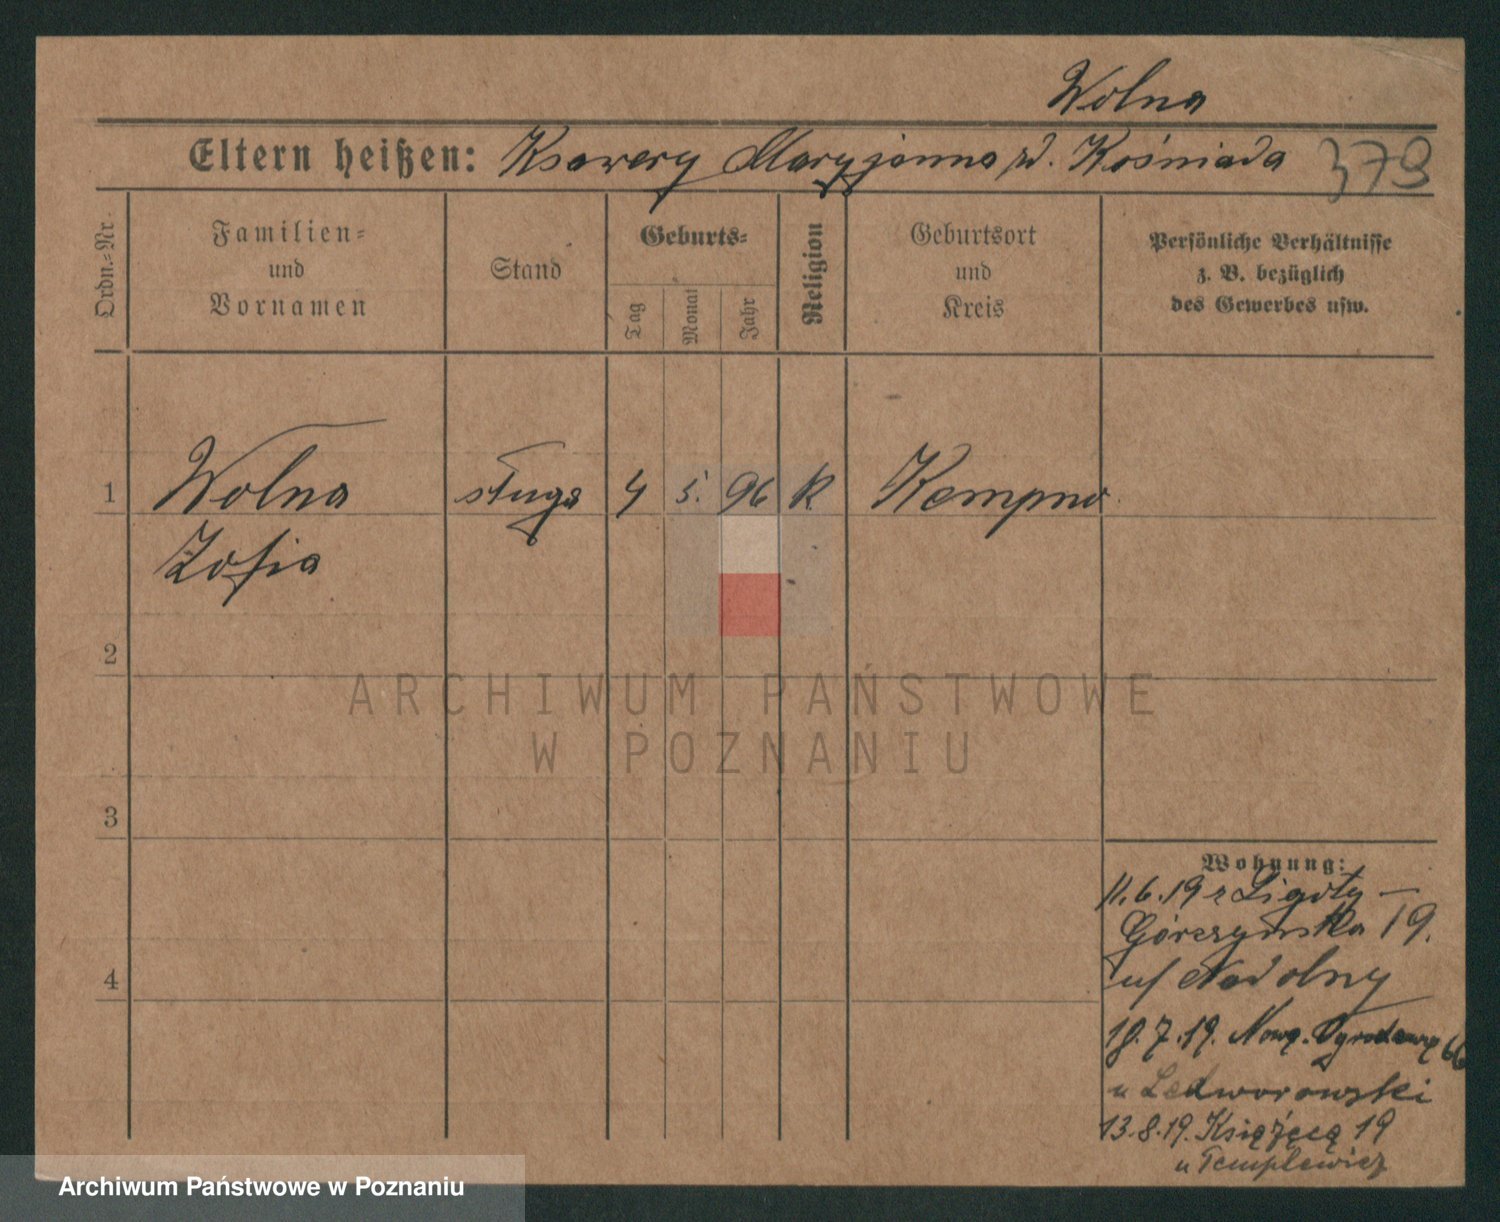 Wolna
Eltern heißen: Ksawery Maryjanna zd. Kośniada 379
Ordn.-Nr.
Familien-
und
Vornamen
Stand
Geburts-
Tag
Monat
Jahr
Religion
Geburtsort
und
Kreis
Persönliche Verhältnisse
z. B. bezüglich
des Gewerbes usw.
1 Wolna sługa 4 5. 96 R. Kempno
Zofia
2
3
4
Wohnung:
11.6.19 z Ligoty —
Górczyńska 19.
u/ Nadolny
18.7.19. Ogrodową 66
u Ledworowski
13.8.19. Książęcą 19
u Templewicz
ARCHIWUM PAŃSTWOWE
W POZNANIU
Archiwum Państwowe w Poznaniu